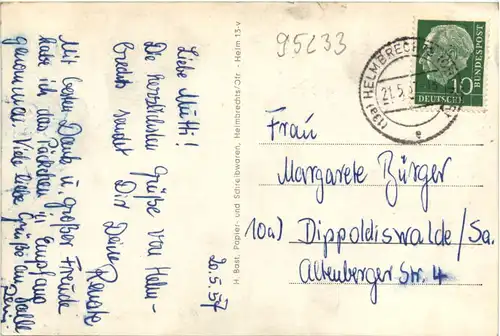 95233
Liebe Mutti!
Die herzlichsten Grüße von Helm-
brechts sendet Dir Deine
Renate
20.5.57
Mit besten Dank u. großer Freude
habe ich das Päckchen in Empfang
genommen. Viele liebe Grüße an alle
H. Bast, Papier- und Schreibwaren, Helmbrechts/Ofr. - Helm 13-v
(13a) HELMBRECHTS
21.5.
e
10
DEUTSCHE
BUNDESPOST
Frau
Margarete Bürger
10a) Dippoldiswalde/Sa.
Altenberger Str. 4